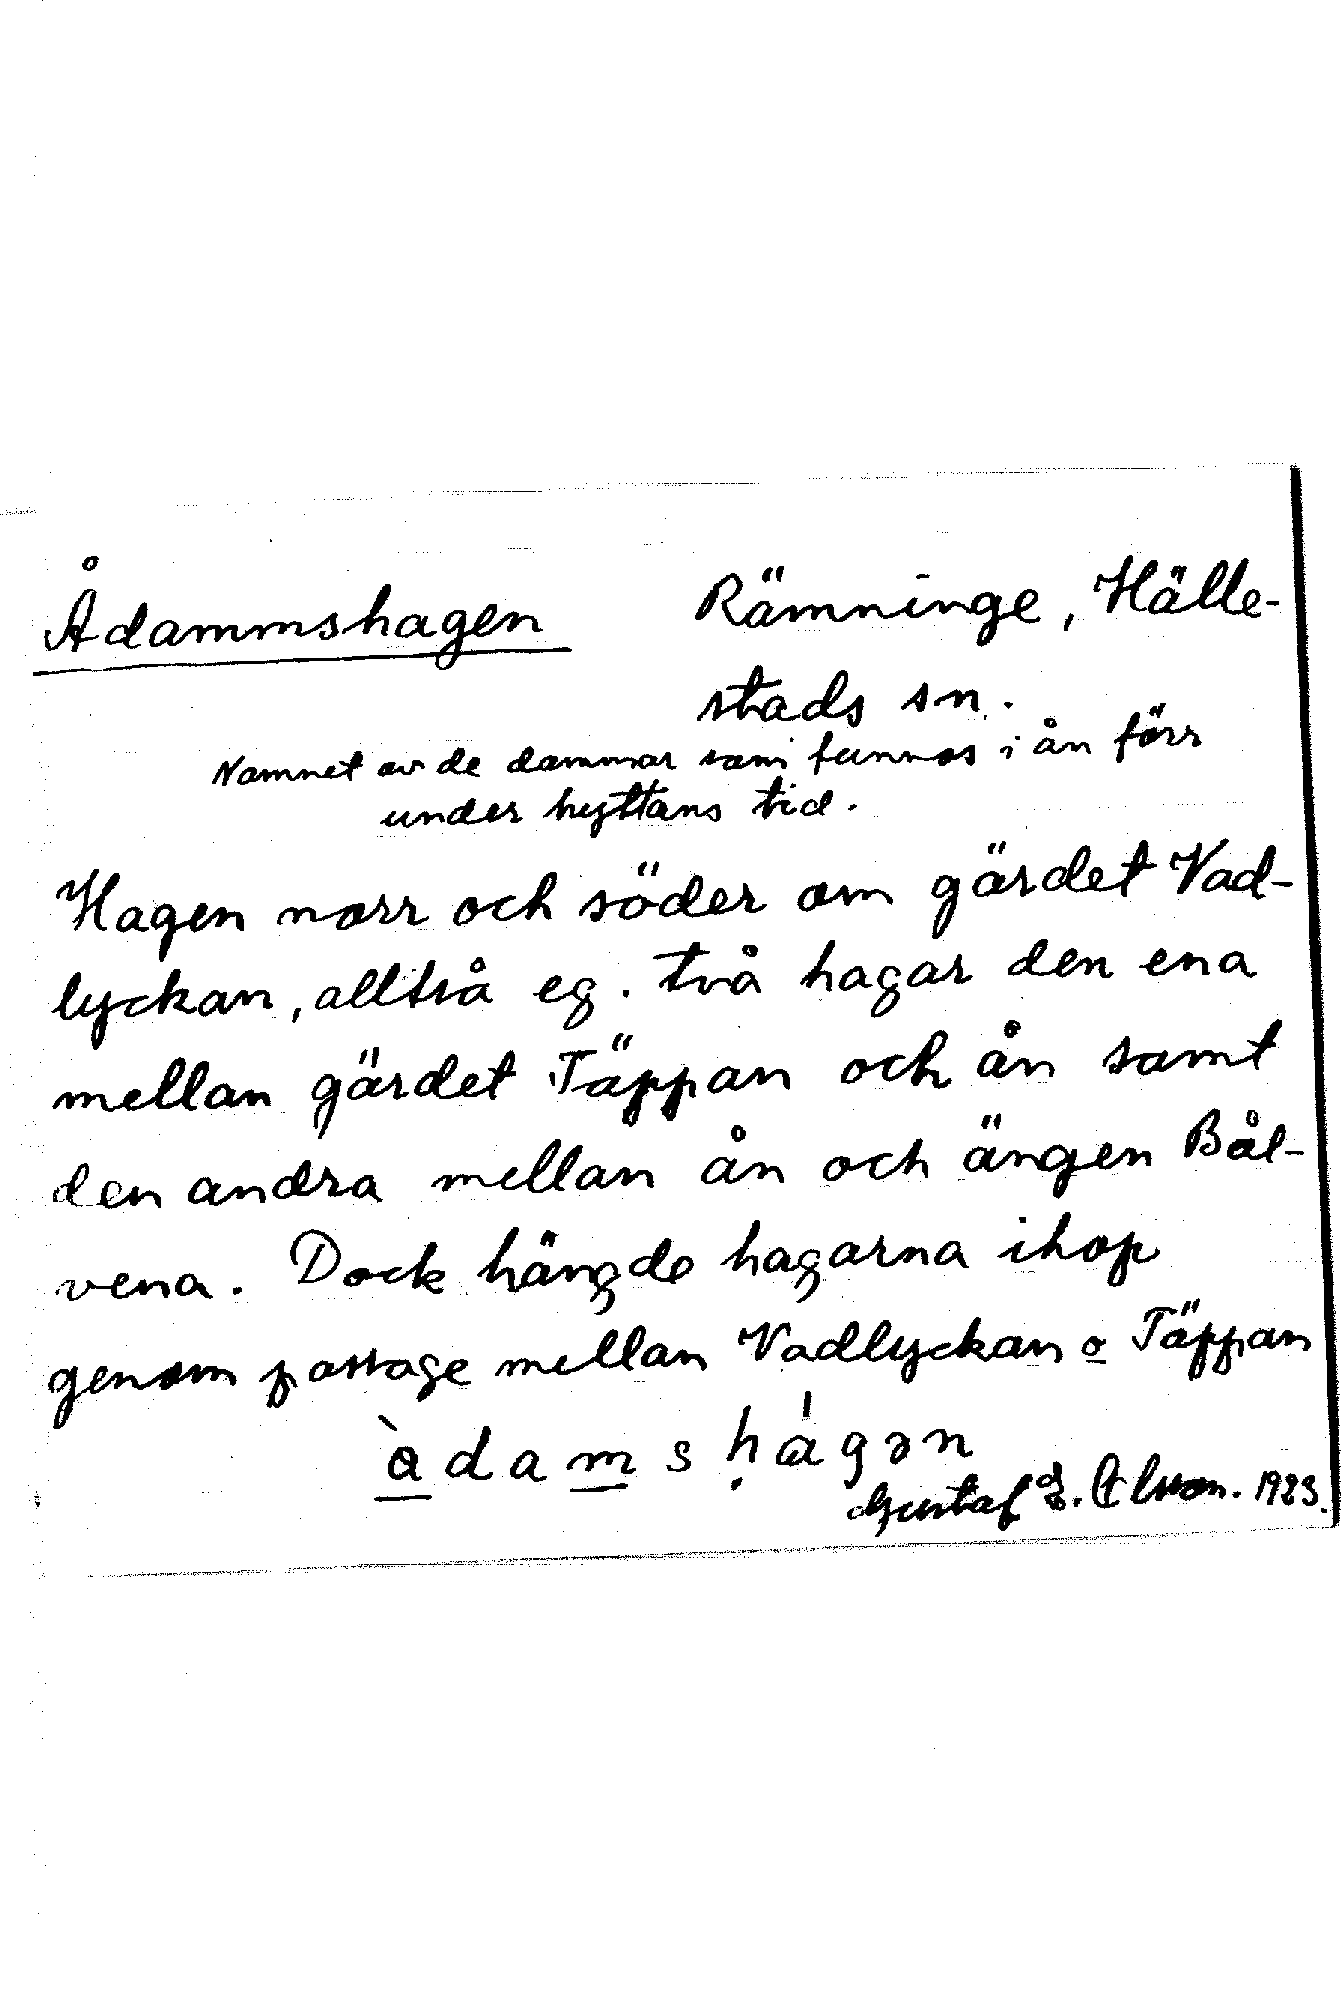 Ådammshagen Rämninge, Hälle-
stads sn.
Namnet av de dammar som funnos i ån förr
under hyttans tid.
Hagen norr och söder om gärdet Vad-
lyckan, alltså eg. två hagar den ena
mellan gärdet Täppan och ån samt
den andra mellan ån och ängen Bål-
vena. Dock hängde hagarna ihop
genom passage mellan Vadlyckan o Täppan
àdamshágən
Gustaf 1923.